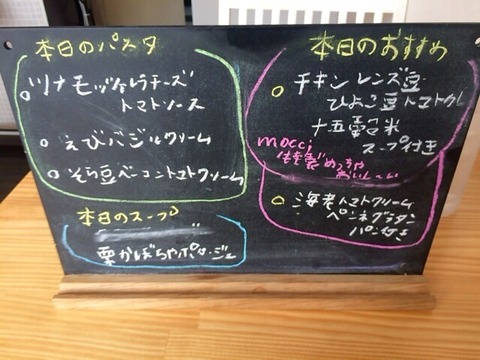 本日のパスタ
ツナモッツァレラチーズ
トマトソース
えびバジルクリーム
そら豆ベーコントマトクリーム
本日のスープ
栗かぼちゃポタージュ
本日のおすすめ
チキンレンズ豆
ひよこ豆トマトカレー
十五雑穀米
スープ付き
mocci
めっちゃ
おいしーい
海老トマトクリーム
ペンネグラタン
パン付き